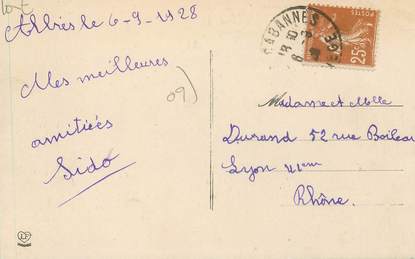 Lot
Albiès le 6-9-1928
Mes meilleures
amitiées
Sido
09)
CABANNES
18 30
6 -9
28
POSTES
25c
Madame et Melle
Durand 52 rue Boileau
Lyon VIem
Rhône.